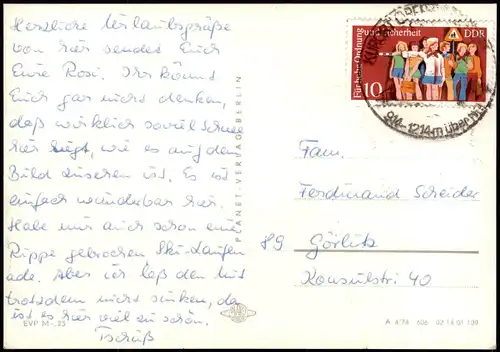 Herzliche Urlaubsgrüße
von hier sendet Euch
Eure Rosi. Ihr könnt
Euch gar nicht denken,
daß wirklich soviel Schnee
hier liegt, wie es auf dem
Bild zusehen ist. Es ist
einfach wunderbar hier.
Habe mir auch schon eine
Rippe gebrochen. Ski-Laufen
ade. Aber ich laß den Mut
trotzdem nicht sinken, da
ist es hier viel zu schön.
Tschüß
EVP M -,25
PLANET-VERLAG BERLIN
Für hohe Ordnung
und Sicherheit
DDR
10
914-1214 m über
Fam.
Ferdinand Schreider
89 Görlitz
Konsulstr 40